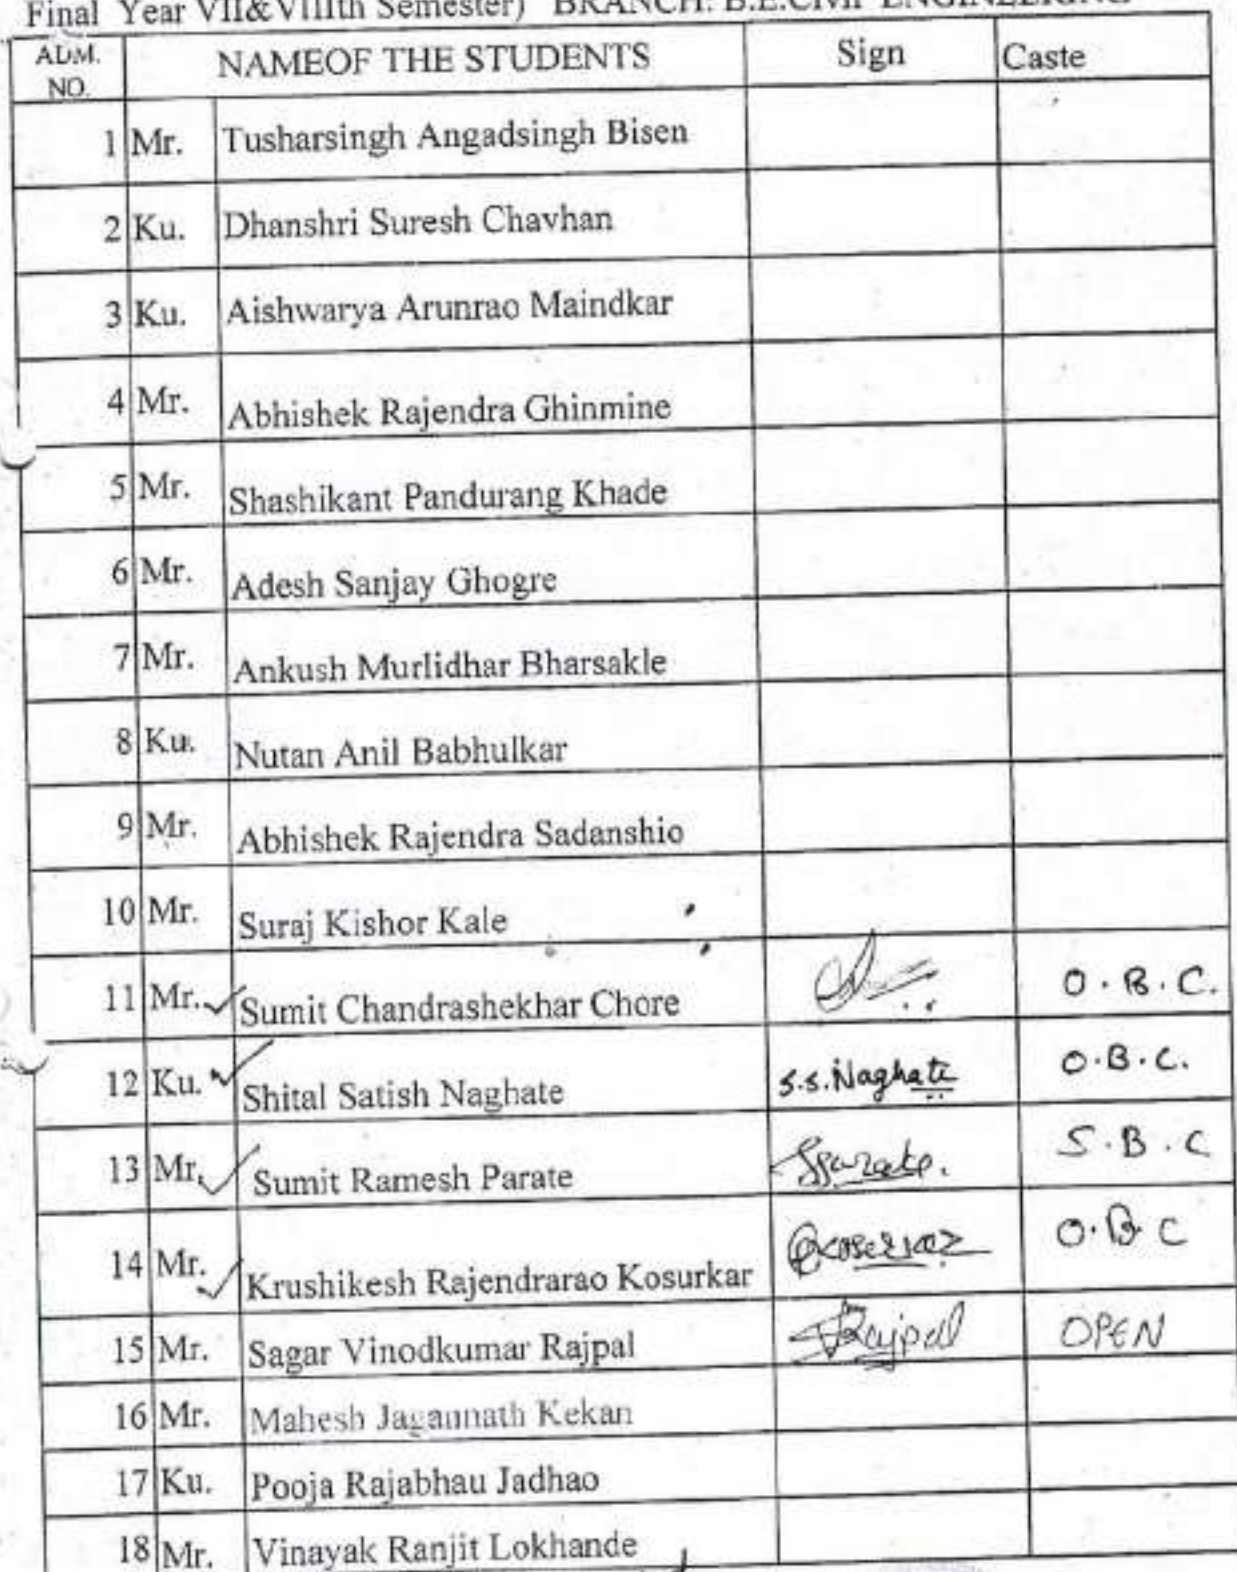 Final Year VII&VIIIth Semester) BRANCH: B.E.Civil ENGINEERING
ADM. NO. NAMEOF THE STUDENTS Sign Caste
1 Mr. Tusharsingh Angadsingh Bisen
2 Ku. Dhanshri Suresh Chavhan
3 Ku. Aishwarya Arunrao Maindkar
4 Mr. Abhishek Rajendra Ghinmine
5 Mr. Shashikant Pandurang Khade
6 Mr. Adesh Sanjay Ghogre
7 Mr. Ankush Murlidhar Bharsakle
8 Ku. Nutan Anil Babhulkar
9 Mr. Abhishek Rajendra Sadanshio
10 Mr. Suraj Kishor Kale
11 Mr. Sumit Chandrashekhar Chore O.B.C.
12 Ku. Shital Satish Naghate S.S.Naghate O.B.C.
13 Mr. Sumit Ramesh Parate S.B.C
14 Mr. Krushikesh Rajendrarao Kosurkar O.B.C
15 Mr. Sagar Vinodkumar Rajpal Rajpal OPEN
16 Mr. Mahesh Jagannath Kekan
17 Ku. Pooja Rajabhau Jadhao
18 Mr. Vinayak Ranjit Lokhande